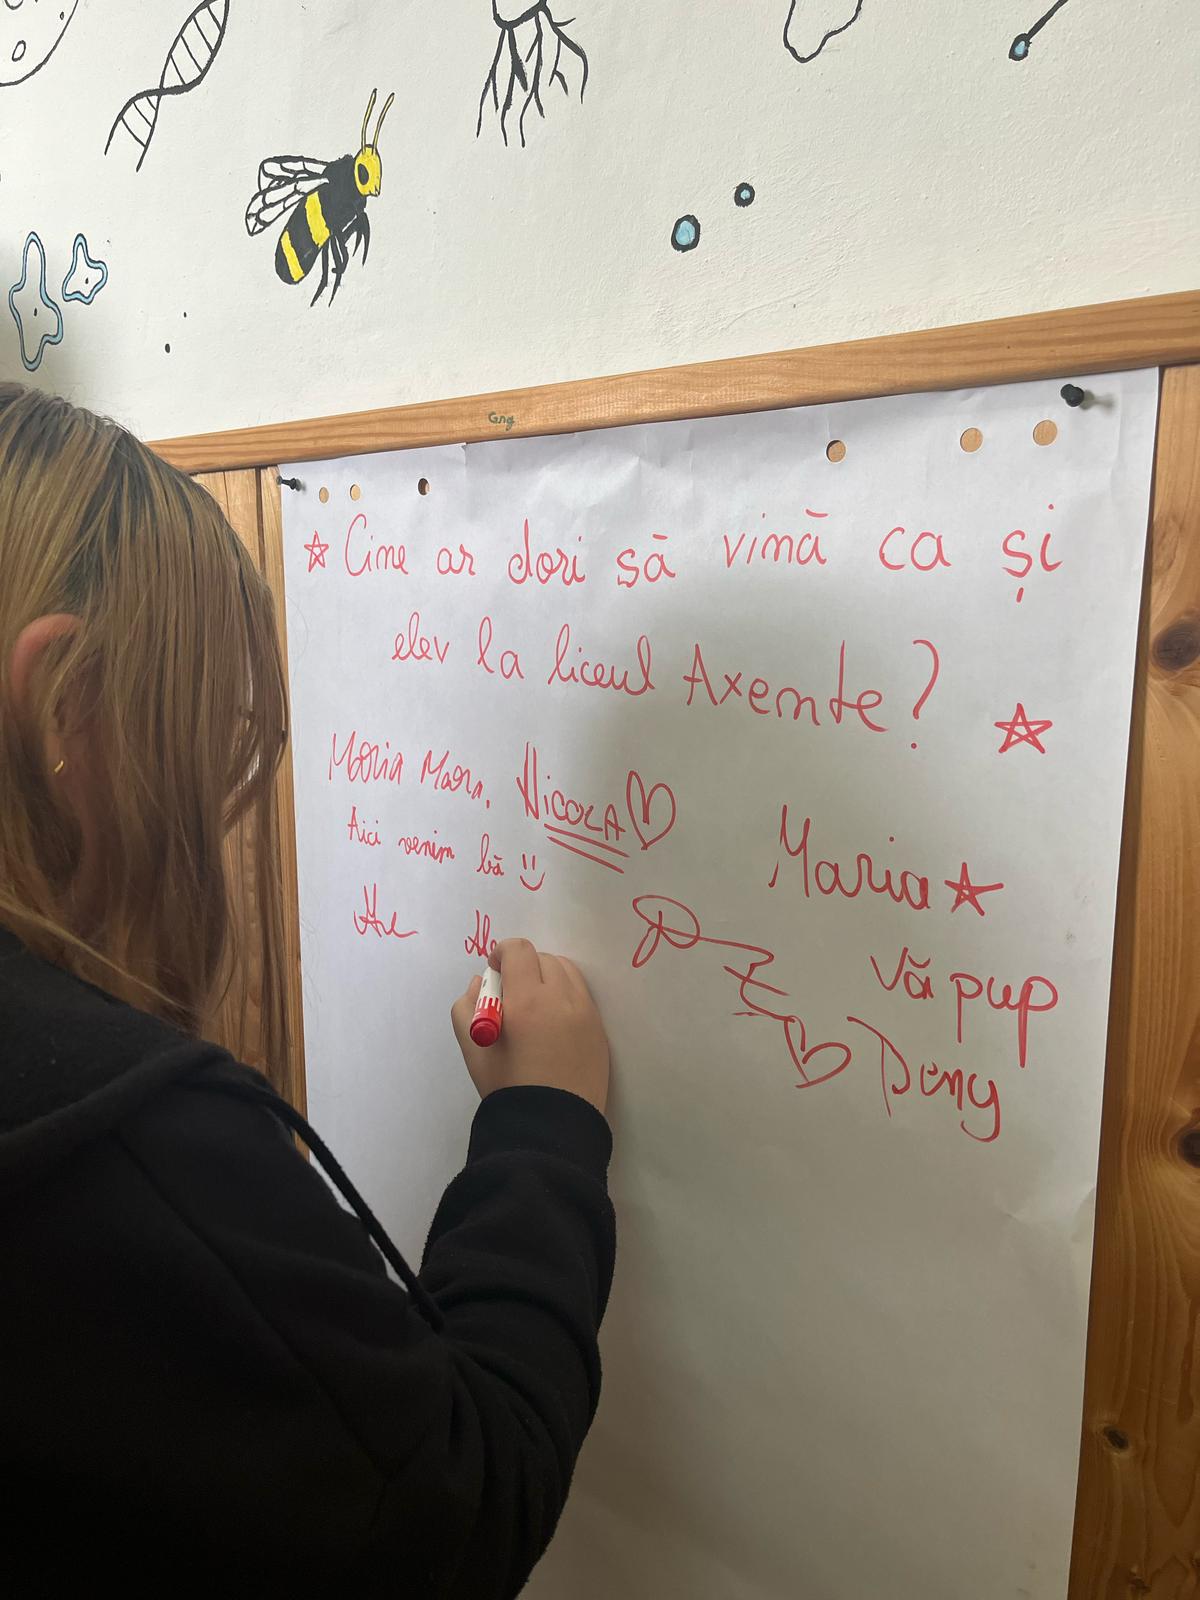 Gng
Cine ar dori să vină ca și
elev la liceul Axente?
Maria Mara, NICOLA
Aici venim bă
Maria
Ale
vă pup
Deny